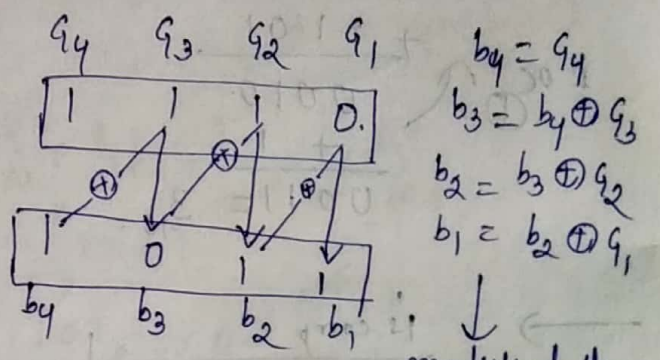 G4 G3 G2 G1
1 1 1 0.
⊕ ⊕ ⊕
1 0 1 1
b4 b3 b2 b1
b4 = G4
b3 = b4 ⊕ G3
b2 = b3 ⊕ G2
b1 = b2 ⊕ G1